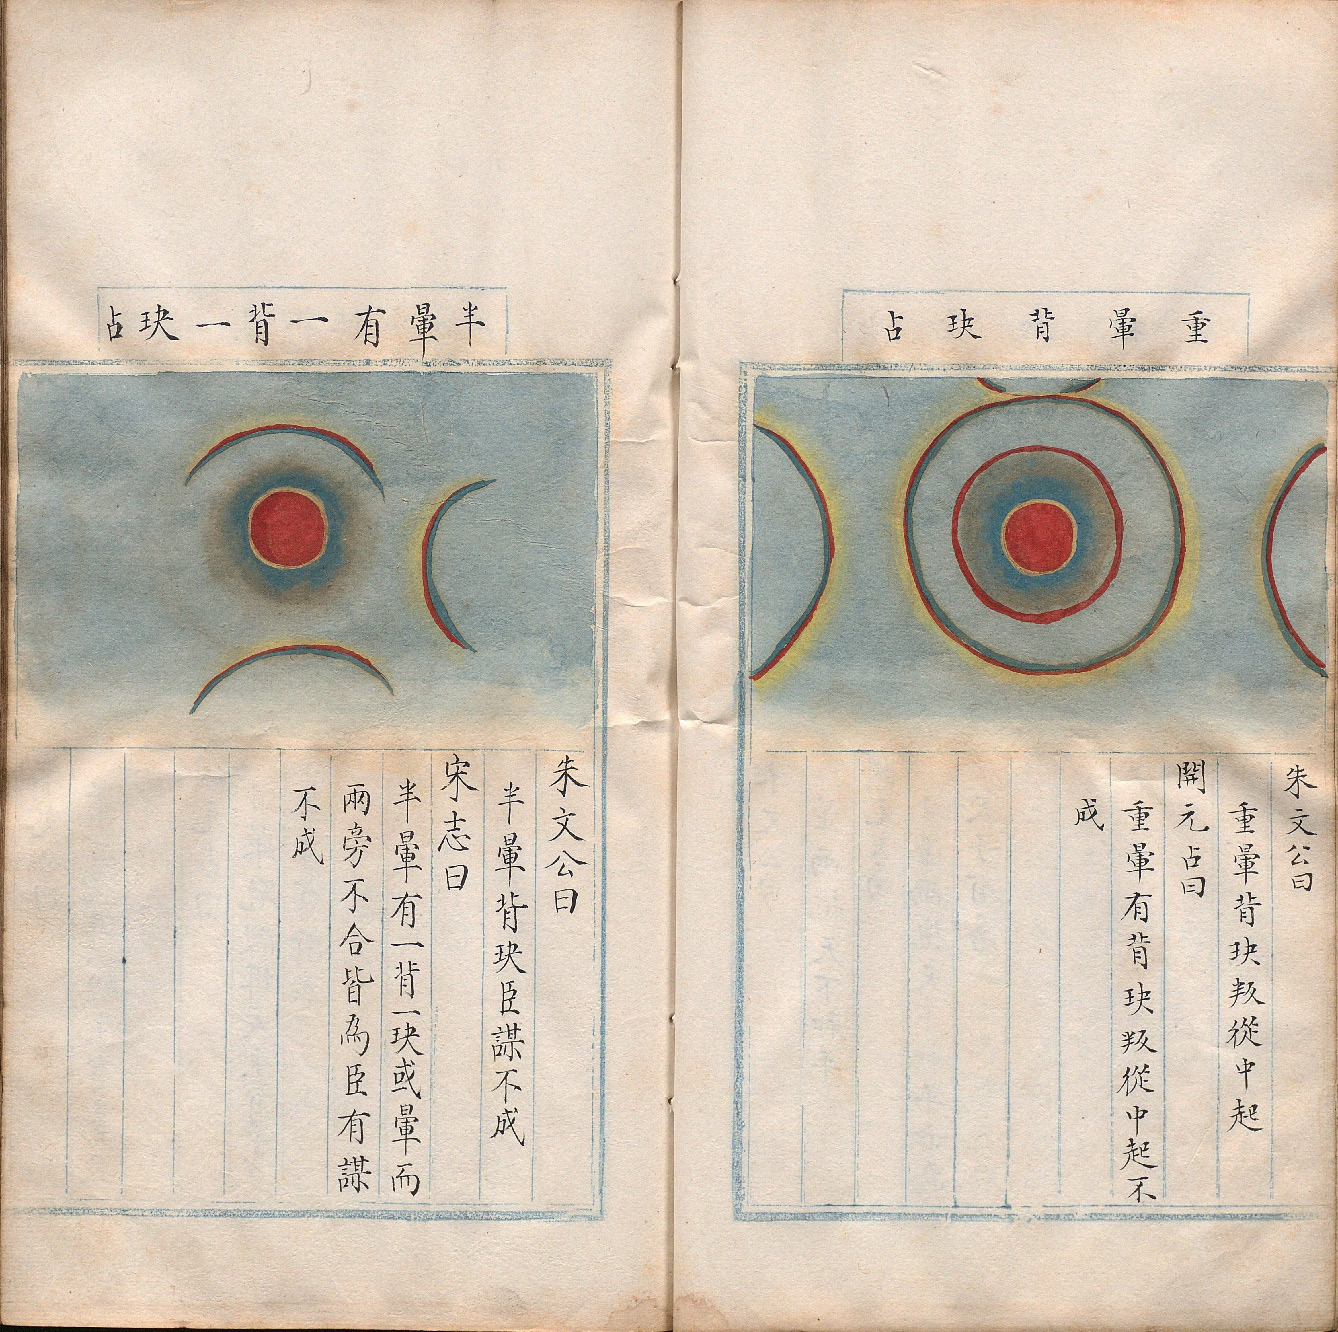 重暈背玦占
朱文公曰
重暈背玦叛從中起
開元占曰
重暈有背玦叛從中起不
成
半暈有一背一玦占
朱文公曰
半暈背玦臣謀不成
宋志曰
半暈有一背一玦或暈而
兩旁不合皆為臣有謀
不成